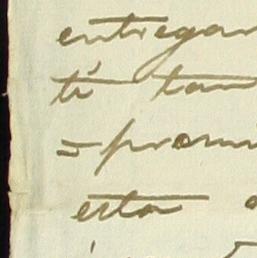 entregan
ti tan
= prem
esta